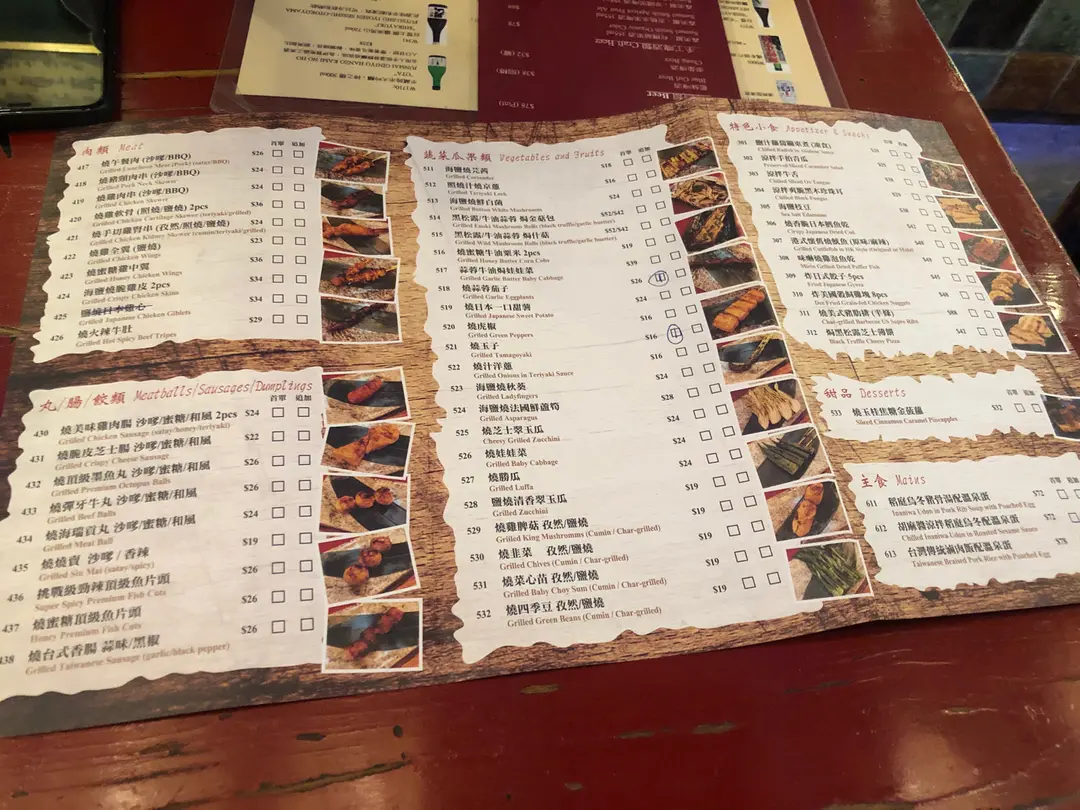 肉類 Meat
首單 追加
417 燒午餐肉 (沙嗲/BBQ) $26
Grilled Luncheon Meat (Pork) (satay/BBQ)
418 燒豬頸肉串 (沙嗲/BBQ) $24
Grilled Pork Neck Skewer
419 燒雞肉串 (沙嗲/BBQ) $24
Grilled Chicken Skewer
420 燒雞軟骨 (照燒/鹽燒) 2pcs $36
Grilled Chicken Cartilage Skewer (teriyaki/grilled)
421 燒手切雞腎串 (孜然/照燒/鹽燒) $24
Grilled Chicken Kidney Skewer (cumin/teriyaki/grilled)
422 燒全翼 (鹽燒) $23
Grilled Chicken Wings
423 燒蜜糖雞中翼 $24
Grilled Honey Chicken Wings
424 海鹽燒脆雞皮 2pcs $34
Grilled Crispy Chicken Skins
425 燒日本雞心 $34
Grilled Japanese Chicken Giblets
426 燒火辣牛肚 $29
Grilled Hot Spicy Beef Tripes
丸/腸/餃類 Meatballs/Sausages/Dumplings
首單 追加
430 燒美味雞肉腸 沙嗲/蜜糖/和風 2pcs $24
Grilled Chicken Sausage (satay/honey/teriyaki)
431 燒脆皮芝士腸 沙嗲/蜜糖/和風 $22
Grilled Crispy Cheese Sausage
432 燒頂級墨魚丸 沙嗲/蜜糖/和風 $26
Grilled Premium Octopus Balls
433 燒彈牙牛丸 沙嗲/蜜糖/和風 $26
Grilled Beef Balls
434 燒海瑞貢丸 沙嗲/蜜糖/和風 $24
Grilled Meat Ball
435 燒燒賣 沙嗲/香辣 $19
Grilled Siu Mai (satay/spicy)
436 挑戰級勁辣頂級魚片頭 $26
Super Spicy Premium Fish Cuts
437 燒蜜糖頂級魚片頭 $26
Honey Premium Fish Cuts
438 燒台式香腸 蒜味/黑椒 $26
Grilled Taiwanese Sausage (garlic/black pepper)
蔬菜瓜果類 Vegetables and Fruits
首單 追加
511 海鹽燒芫茜 $18
Grilled Coriander
512 照燒汁燒京蔥 $16
Grilled Teriyaki Leek
513 海鹽燒鮮白菌 $24
Grilled Button White Mushrooms
514 黑松露/牛油蒜蓉 焗金菇包 $52/$42
Grilled Enoki Mushroom Rolls (black truffle/garlic butter)
515 黑松露/牛油蒜蓉 焗什菇包 $52/$42
Grilled Wild Mushroom Rolls (black truffle/garlic butter)
516 燒蜜糖牛油粟米 2pcs $19
Grilled Honey Butter Corn Cobs
517 蒜蓉牛油焗娃娃菜 $39
Grilled Garlic Butter Baby Cabbage
518 燒蒜蓉茄子 $26
Grilled Garlic Eggplants
519 燒日本一口甜薯 $24
Grilled Japanese Sweet Potato
520 燒虎椒 $16
Grilled Green Peppers
521 燒玉子 $16
Grilled Tamagoyaki
522 燒汁洋蔥 $16
Grilled Onions in Teriyaki Sauce
523 海鹽燒秋葵 $24
Grilled Ladyfingers
524 海鹽燒法國鮮蘆筍 $28
Grilled Asparagus
525 燒芝士翠玉瓜 $24
Cheesy Grilled Zucchini
526 燒娃娃菜 $24
Grilled Baby Cabbage
527 燒勝瓜 $24
Grilled Luffa
528 鹽燒清香翠玉瓜 $19
Grilled Zucchini
529 燒雞脾菇 孜然/鹽燒 $19
Grilled King Mushromms (Cumin / Char-grilled)
530 燒韭菜 孜然/鹽燒 $19
Grilled Chives (Cumin / Char-grilled)
531 燒菜心苗 孜然/鹽燒 $19
Grilled Baby Choy Sum (Cumin / Char-grilled)
532 燒四季豆 孜然/鹽燒 $19
Grilled Green Beans (Cumin / Char-grilled)
特色小食 Appetizer & Snacks
首單 追加
301
302 涼拌手拍青瓜
303 涼拌牛舌
Chilled Sliced Ox Tongue
304
Chilled Black Fungus
305 海鹽枝豆
Sea Salt Edamame
306
Crispy Japanese Dried Cut
307 港式懷舊燒魷魚 (原味/麻辣)
308
Mirin Grilled Dried Puffer Fish
309 炸日式餃子 5pcs
Fried Japanese Gyoza
310 炸美國穀飼雞塊 8pcs $48
Deep Fried Grain-fed Chicken Nuggets
311 燒美式豬肋排 (半條) $88
Char-grilled Barbecue US Spare Ribs
312 焗黑松露芝士薄餅 $42
Black Truffle Cheesy Pizza
甜品 Desserts
首單 追加
533 燒玉桂焦糖金菠蘿 $32
Sliced Cinnamon Caramel Pineapples
主食 Mains
首單 追加
611 稻庭烏冬豬骨湯配溫泉蛋 $72
Inaniwa Udon in Pork Rib Soup with Poached Egg
612 胡麻醬涼拌稻庭烏冬配溫泉蛋 $72
Chilled Inaniwa Udon in Roasted Sesame Sauce
613 台灣傳統滷肉飯配溫泉蛋
Taiwanese Braised Pork Rice with Poached Egg